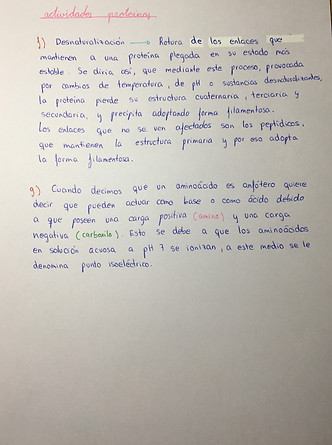 actividades proteínas
f) Desnaturalización → Rotura de los enlaces que
mantienen a una proteína plegada en su estado más
estable. Se diría así, que mediante este proceso, provocada
por cambios de temperatura, de pH o sustancias desnaturalizantes,
la proteína pierde su estructura cuaternaria, terciaria y
secundaria, y precipita adoptando forma filamentosa.
Los enlaces que no se ven afectados son los peptídicos,
que mantienen la estructura primaria y por eso adopta
la forma filamentosa.
g) Cuando decimos que un aminoácido es anfótero quiere
decir que pueden actuar como base o como ácido debido
a que poseen una carga positiva (amino) y una carga
negativa (carbonilo). Esto se debe a que los aminoácidos
en solución acuosa a pH 7 se ionizan, a este medio se le
denomina punto isoeléctrico.